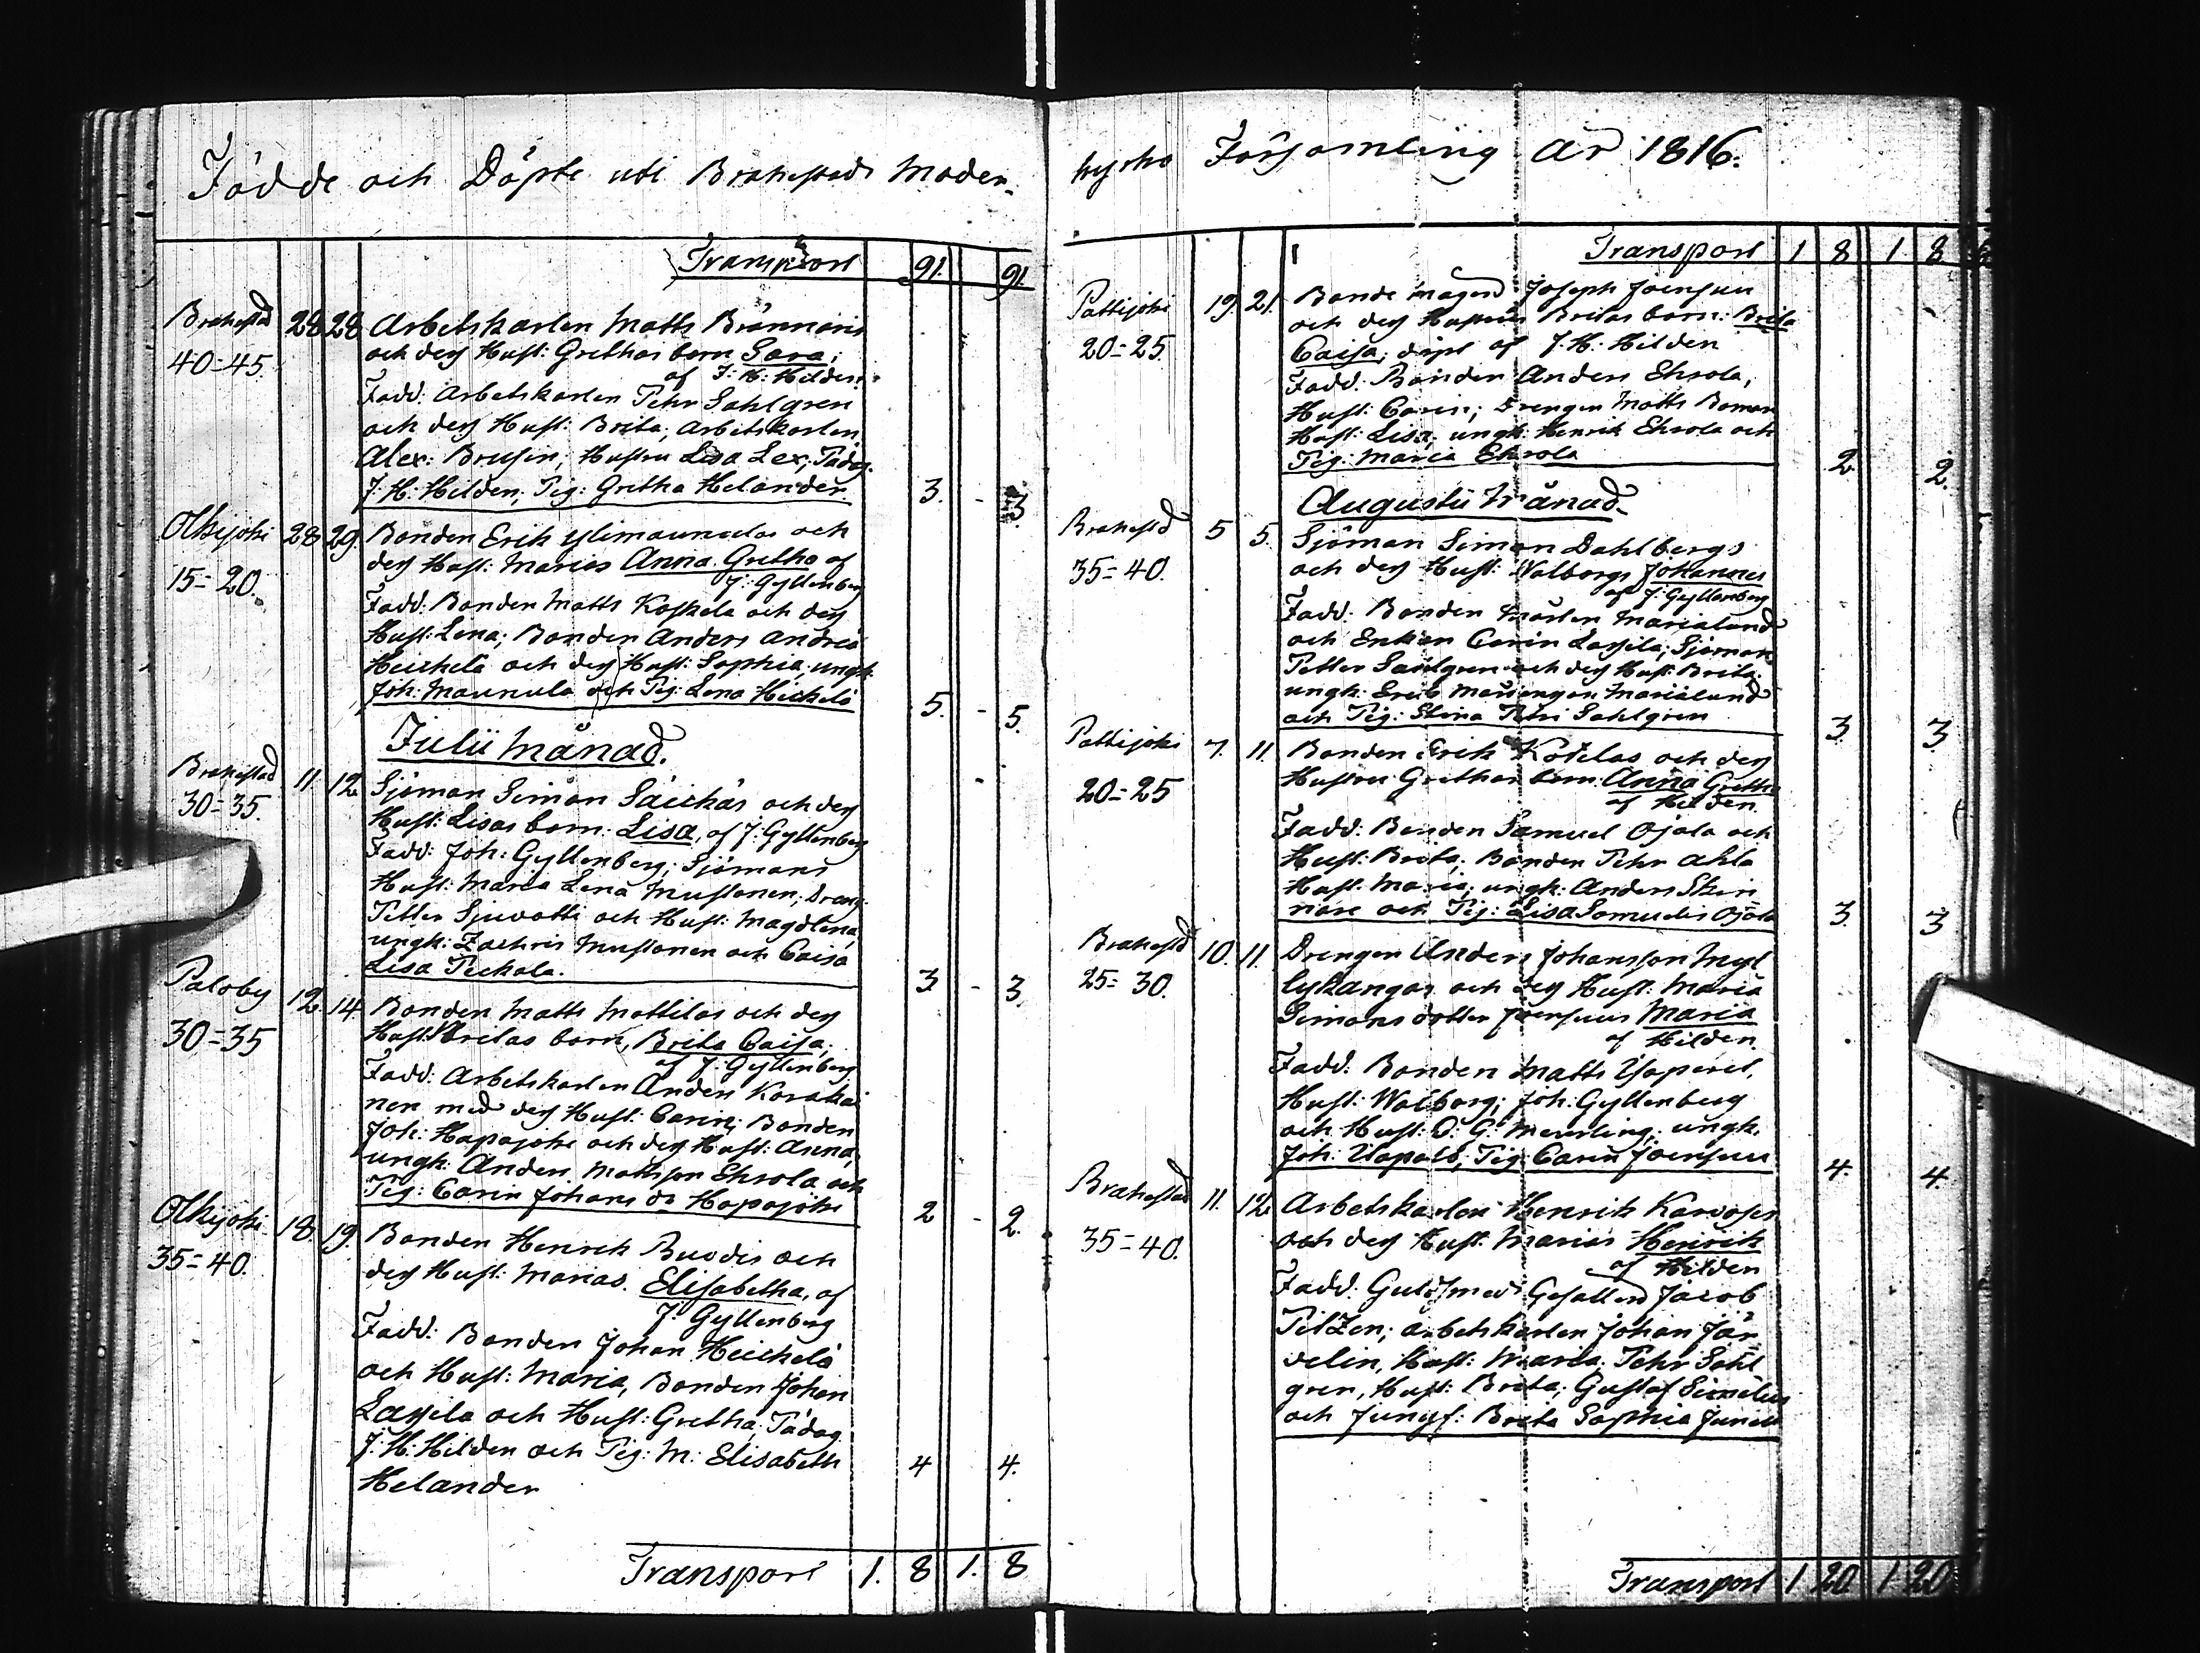 Födde och Döpte uti Brahestads Moder-
Transport 91. 91.
Brahestad 28 28 Arbetskarlen Matts Brännaris
40=45. och dess Hust: Grethas barn Sara;
af J: H: Hilden.
Fadd: Arbetskarlen Pehr Sahlgren
och dess Hust: Brita; Arbetskarlen
Alex: Brusin; Hustru Lisa Lex; Pädag.
J. H: Hilden; Pig: Gretha Helander 3. - 3.
Olkijoki 28 29. Bonden Erik Ylimaunulas och
15=20. dess Hust: Marias Anna Gretha af
J: Gyllenberg
Fadd: Bonden Matts Koskela och dess
Hust: Lena; Bonden Anders Andreä
Heickelä och dess Hust: Sophia; ungk:
Joh: Maunula och Pig: Lena Heickelä 5. - 5.
Julii Månad.
Brahestad 11. 12. Sjöman Simon Säickäs och dess
30=35. Hust: Lisas barn: Lisa, af J: Gyllenberg
Fadd: Joh: Gyllenberg; Sjömans
Hust: Maria Lena Mustonen; Dreng:
Petter Sjuvatti och Hust: Magdlena,
ungk: Zachris Mustonen och Caisa
Lisa Peckala. 3 - 3.
Paloby 12. 14. Bonden Matts Mattilas och dess
30=35 Hust: Britas barn, Brita Caisa;
af J: Gyllenberg
Fadd: Arbetskarlen Anders Korakai
nen med dess Hust: Carin; Bonden
Joh: Hapajoki och dess Hust: Anna;
ungk: Anders Mattsson Ehrola och
Pig: Carin Johans dr Hapajoki 2 - 2.
Olkijoki 18. 19. Bonden Henrik Ruodis och
35=40. dess Hust: Marias. Elisabetha, af
J: Gyllenberg
Fadd: Bonden Johan Heickelä
och Hust: Maria, Bonden Johan
Lassila och Hust: Gretha; Pädag.
J: H: Hilden och Pig: M: Elisabeth 4 4.
Helander
Transport 1. 8 1. 8
kyrko Församling år 1816.
Transport 1 8 1. 8
Pattijoki 19. 21. Bonde mågen Joseph Joensuu
20=25. och dess Hustrus Britas barn: Brita
Caisa; döpt af J. H: Hilden
Fadd: Bonden Anders Ehrola;
Hust: Carin; Drengen Matts Boman
Hust: Lisa; ungk: Henrik Ehrola och
Pig: Maria Ehrola 2. 2.
Augustii Månad.
Brahestd 5 5. Sjöman Simon Dahlbergs
35=40. och dess Hust: Walborgs Johannes
af J: Gyllenberg
Fadd: Bonden Mårten Marialund
och Enkan Carin Lassila; Sjöman
Petter Sahlgren och dess Hust: Brita;
ungk: Erik Marialund
och Pig: Stina Sahlgren 3. 3.
Pattijoki 7. 11. Bonden Erik Kotilas och dess
20=25 Hustru Grethas barn: Anna Gretha
af Hilden
Fadd: Bonden Samuel Ojala och
Hust: Brita; Bonden Pehr Ahla
Hust: Maria; ungk: Anders Skin
nare och Pig: Lisa Samuelis Ojala 3. 3
Brahestd 10. 11. Drengen Anders Johansson Myl
25=30. lykangas och dess Hust: Maria
Simons dotter Joensuus Maria
af Hilden.
Fadd: Bonden Matts
Hust: Walborg; Joh: Gyllenberg
och Hust: O: G: Meurling; ungk.
Joh: Pig: Carin Joensuu 4. 4.
Brahestad 11. 12. Arbetskarlen Henrik Karvoses
35=40. och dess Hust: Marias Henrik
af Hilden
Fadd: Guldsmed Gesällen Jacob
Pilzen; arbetskarlen Johan Jän
delin, Hust: Maria; Pehr Sahl
gren, Hust: Brita; Gustaf Simelius
och Jungf: Brita Sophia
Transport 1 20 1 20